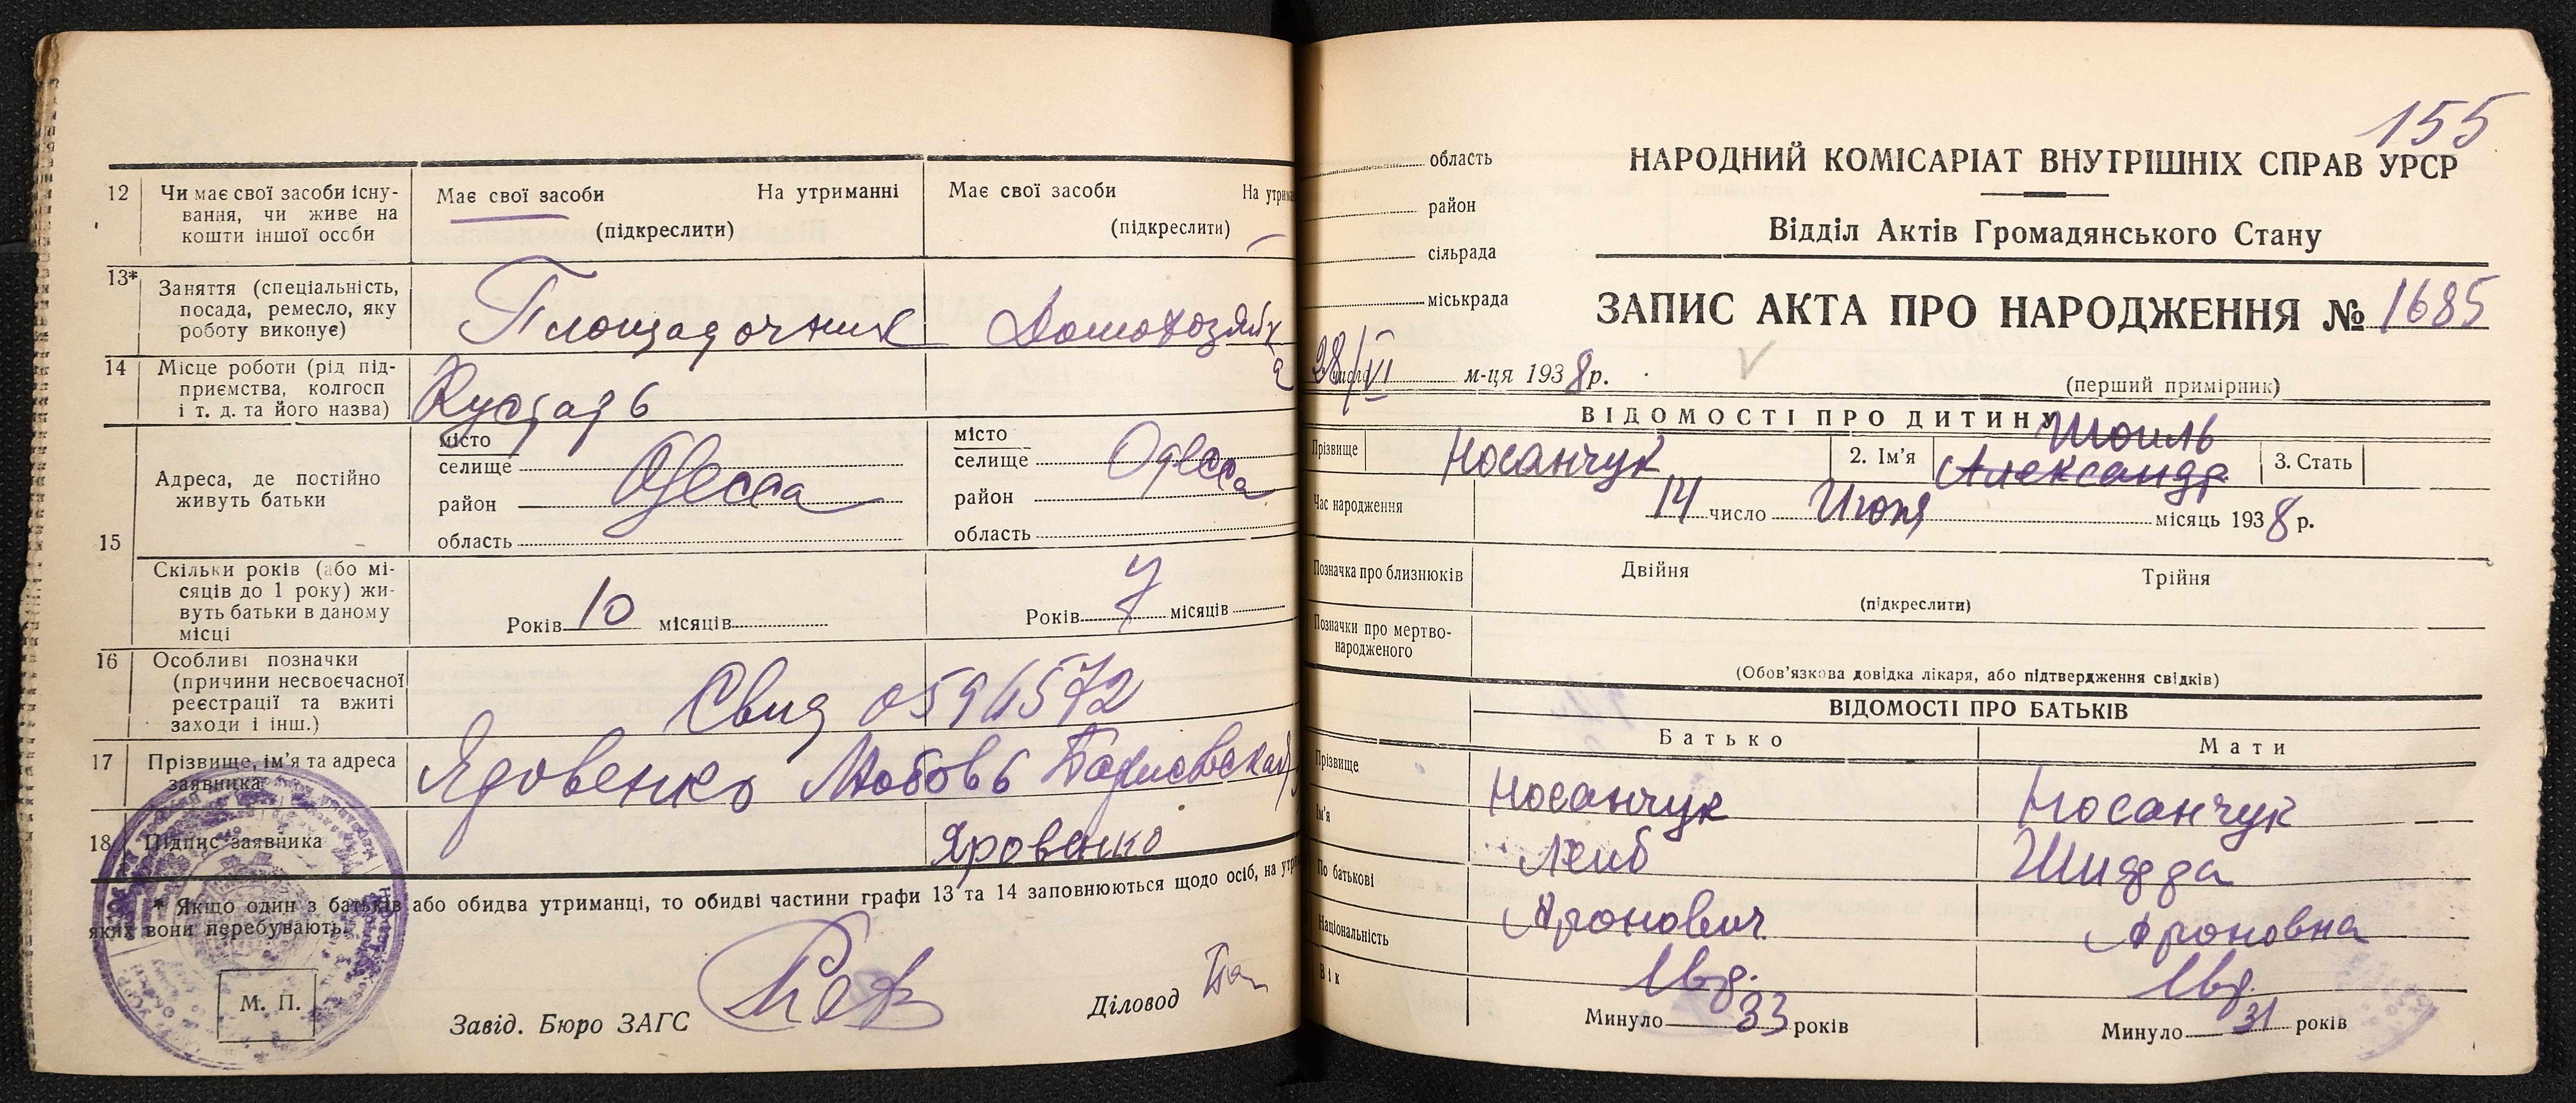 12 Чи має свої засоби існу-
вання, чи живе на
кошти іншої особи
Має свої засоби На утриманні
(підкреслити)
Має свої засоби На утрим
(підкреслити)
13* Заняття (спеціальність,
посада, ремесло, яку
роботу виконує)
Площадочник
Домохозяйк
а
14 Місце роботи (рід під-
приємства, колгосп
і т. д. та його назва)
Кустарь
15 Адреса, де постійно
живуть батьки
місто
селище
район
область
Одесса
місто
селище
район
область
Одесса
Скільки років (або мі-
сяців до 1 року) жи-
вуть батьки в даному
місці
Років 10 місяців
Років 7 місяців
16 Особливі позначки
(причини несвоєчасної
реєстрації та вжиті
заходи і інш.)
Свид
17 Прізвище, ім'я та адреса
заявника
Любовь
18 Підпис заявника
Яровенко
* Якщо один з батьків або обидва утриманці, то обидві частини графи 13 та 14 заповнюються щодо осіб, на утри
яких вони перебувають.
М. П.
Завід. Бюро ЗАГС
Діловод
155
область
район
сільрада
міськрада
НАРОДНИЙ КОМІСАРІАТ ВНУТРІШНІХ СПРАВ УРСР
Відділ Актів Громадянського Стану
ЗАПИС АКТА ПРО НАРОДЖЕННЯ № 1685
28/VI м-ця 1938 р.
(перший примірник)
ВІДОМОСТІ ПРО ДИТИНУ
Прізвище Носанчук 2. Ім'я Шоиль Александр 3. Стать
Час народження 14 число Июня місяць 1938 р.
Позначка про близнюків Двійня Трійня
(підкреслити)
Позначки про мертво-
народженого
(Обов'язкова довідка лікаря, або підтвердження свідків)
ВІДОМОСТІ ПРО БАТЬКІВ
Батько Мати
Прізвище Носанчук Носанчук
Ім'я Лейб
По батькові Аронович Ароновна
Національність
Вік Минуло 33 років Минуло 31 років